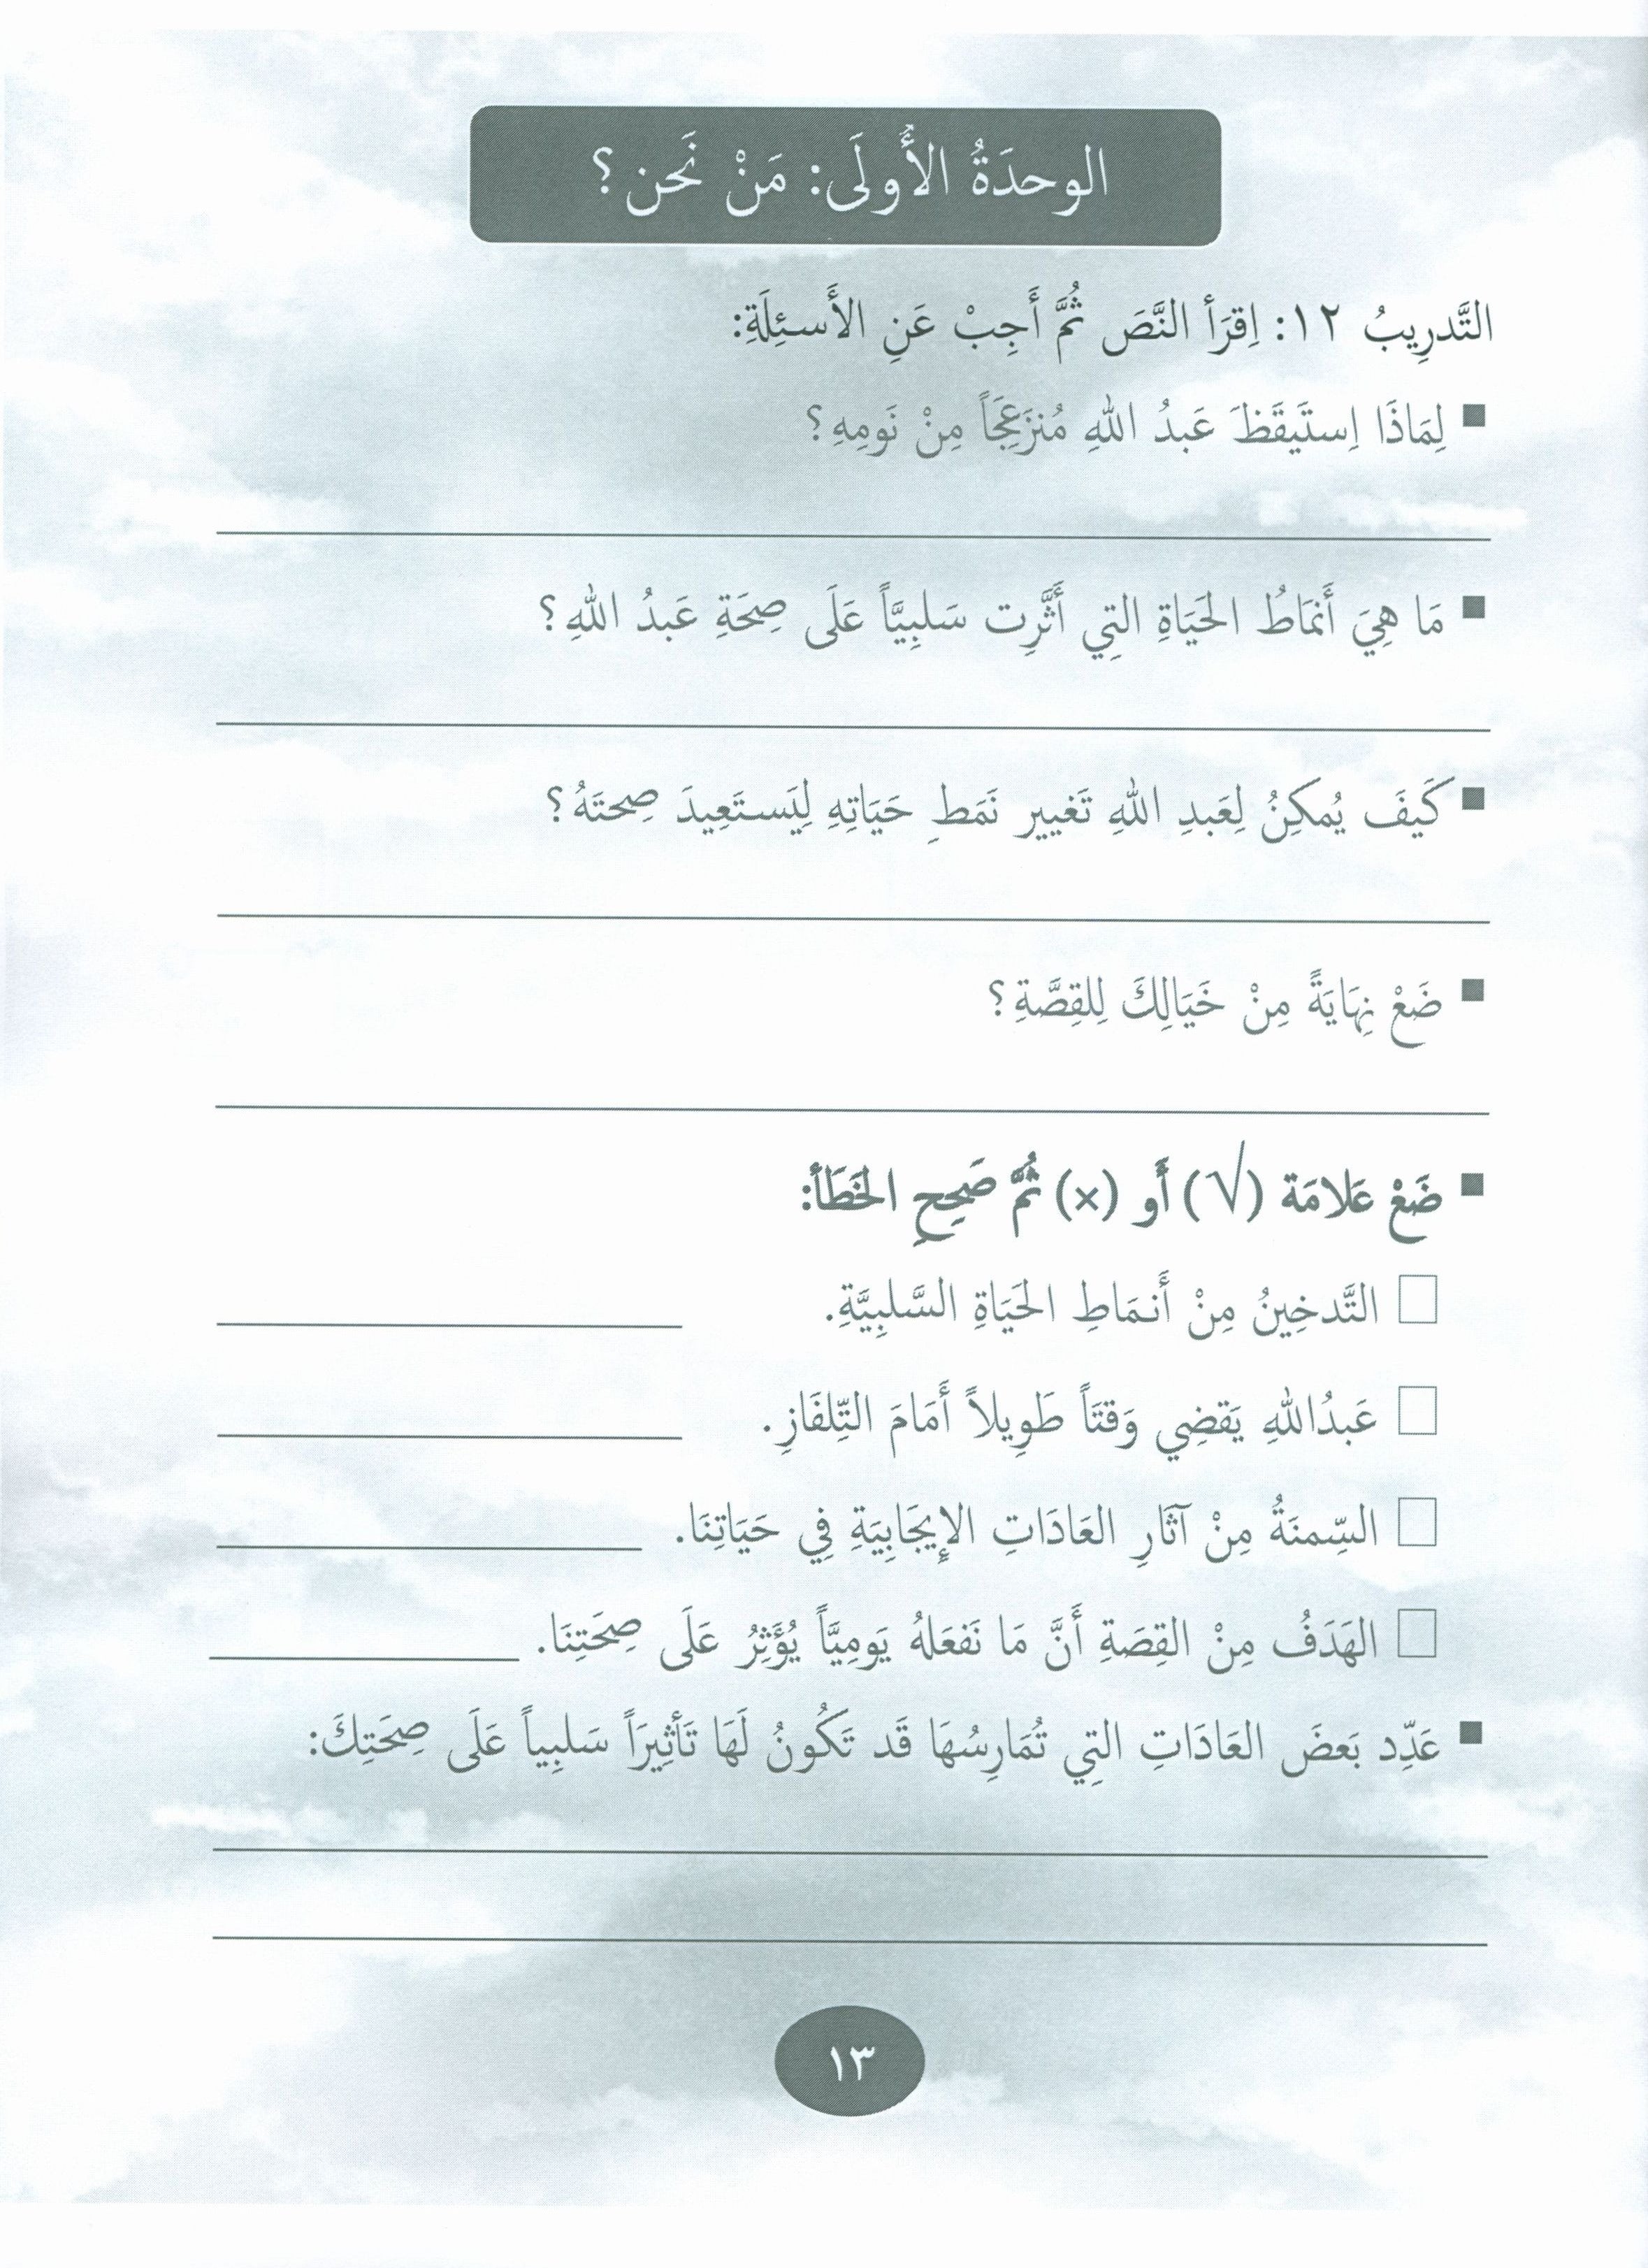 الوحدَةُ الأُولَى: مَنْ نَحن؟
التَّدرِيبُ ١٢: اِقرَأ النَّصَ ثُمَّ أَجِبْ عَنِ الأَسئِلَةِ:
■ لِمَاذَا اِستَيقَظَ عَبدُ اللهِ مُنزَعِجَاً مِنْ نَومِهِ؟
■ مَا هِيَ أَنمَاطُ الحَيَاةِ التِي أَثَّرِت سَلبِيَّاً عَلَى صِحَةِ عَبدُ اللهِ؟
■ كَيفَ يُمكِنُ لِعَبدِ اللهِ تَغيير نَمَطِ حَيَاتِهِ لِيَستَعِيدَ صِحتَهُ؟
■ ضَعْ نِهَايَةً مِنْ خَيَالِكَ لِلقِصَّةِ؟
■ ضَعْ عَلامَة (√) أَو (×) ثُمَّ صَحِحِ الخَطَأ:
□ التَّدخِينُ مِنْ أَنمَاطِ الحَيَاةِ السَّلبِيَّةِ.
□ عَبدُاللهِ يَقضِي وَقتَاً طَوِيلاً أَمَامَ التِّلفَازِ.
□ السِّمنَةُ مِنْ آثَارِ العَادَاتِ الإِيجَابِيَةِ فِي حَيَاتِنَا.
□ الهَدَفُ مِنْ القِصَةِ أَنَّ مَا نَفعَلهُ يَومِيَّاً يُؤَثِرُ عَلَى صِحَتِنَا.
■ عَدِّد بَعضَ العَادَاتِ التِي تُمَارِسُهَا قَد تَكُونُ لَهَا تَأثِيرَاً سَلبِياً عَلَى صِحَتِكَ:
١٣